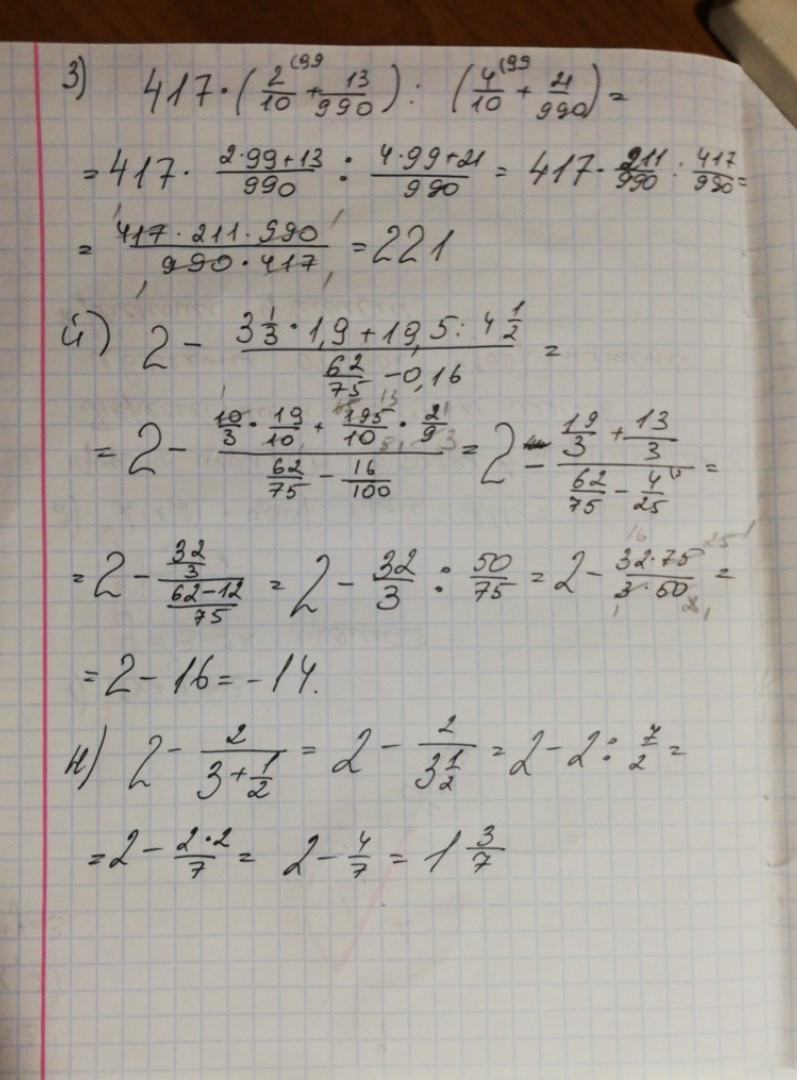 з) 417 · (2/10 (99 + 13/990) : (4/10 (99 + 21/990) =
= 417 · (2·99+13)/990 : (4·99+21)/990 = 417 · 211/990 : 417/990 =
= (417 · 211 · 990)/(990 · 417) = 221
й) 2 - (3 1/3 · 1,9 + 19,5 : 4 1/2)/(62/75 - 0,16) =
= 2 - (10/3 · 19/10 + 195/10 · 2/9)/(62/75 - 16/100) = 2 - (19/3 + 13/3)/(62/75 - 4/25) =
= 2 - (32/3)/((62-12)/75) = 2 - 32/3 : 50/75 = 2 - (32·75)/(3·50) =
= 2 - 16 = -14.
н) 2 - 2/(3 + 1/2) = 2 - 2/(3 1/2) = 2 - 2 : 7/2 =
= 2 - (2·2)/7 = 2 - 4/7 = 1 3/7